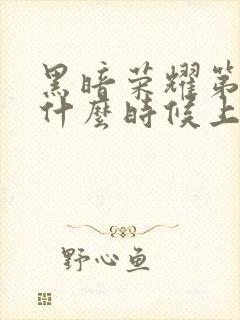 黑暗荣耀第
什麼時候上
野心鱼